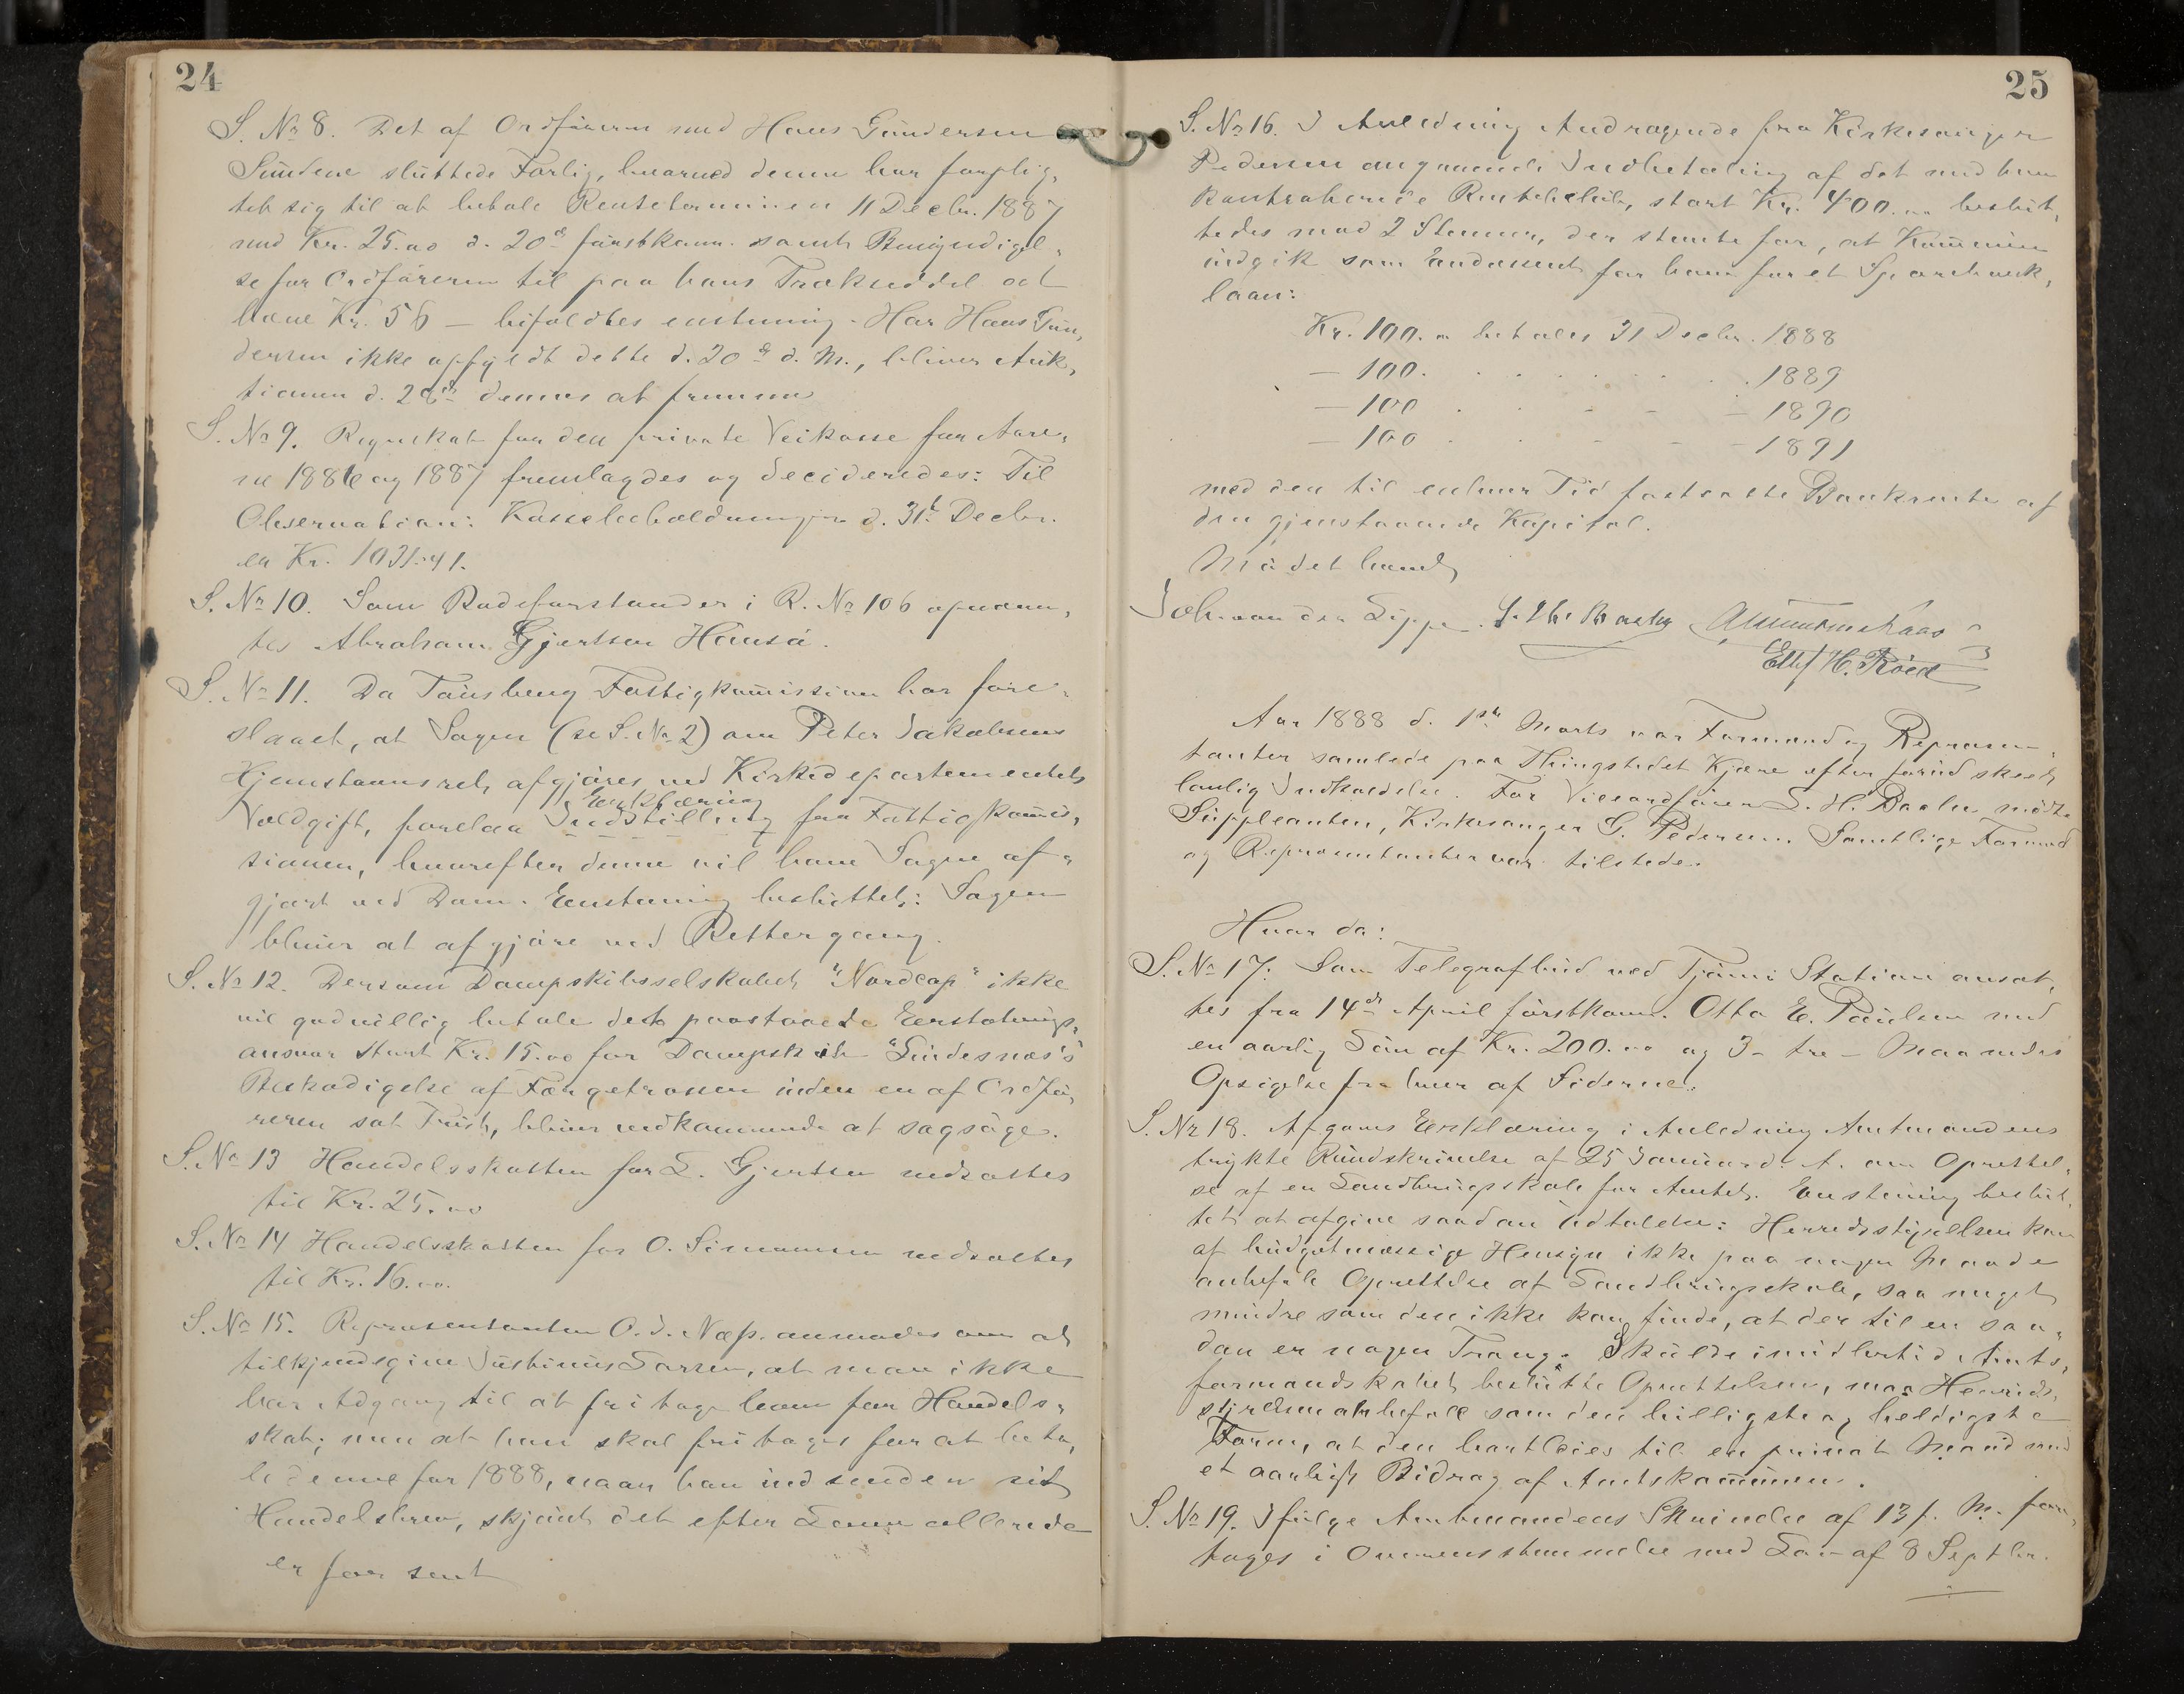 24
S. No 8. Det af Ordföreren med Hans Gundersen
Sundene sluttede Forlig, hvorved denne har forplig-
tet sig til at betale Renteterminen 11 Decbr. 1887
med Kr. 25.00 d. 20de förstkom. samt Bemyndigel-
se for Ordföreren til paa hans Trækseddel at
hæve Kr. 56 — bifaldtes enstemmig. Har Hans Gun-
dersen ikke opfyldt dette d. 20de d. M., bliver Auk-
tionen d. 28de dennes at fremme
S. No 9. Regnskab for den private Veikasse for Aare-
ne 1886 og 1887 fremlagdes og decideredes: Til
Observation: Kassebeholdningen d. 31te Decbr.
er Kr. 1031.41.
S. No 10. Som Rodeforstander i R. No 106 opnævn-
tes Abraham Gjertsen Hönsö.
S. No 11. Da Tönsberg Fattigkommission har fore-
slaaet, at Sagen (se S. No 2) om Peter Jakobsens
Hjemstavnsret, afgjöres ved Kirkedepartementets
Erklæring
Voldgift, forelaa Indstilling fra Fattigkommis-
sionen, hvorefter denne vil have Sagen af-
gjort ved Dom. Enstemmig besluttet: Sagen
bliver at afgjöre ved Rettergang.
S. No 12. Dersom Dampskibsselskabet "Nordcap" ikke
vil godvillig betale det paastaaede Erstatnings-
ansvar stort Kr. 15.00 for Dampskib "Lindesnæs's"
Beskadigelse af Færgetrossen inden en af Ordfö-
reren sat Frist, bliver vedkommende at sagsöge.
S. No 13 Handelsskatten for L. Gjertsen nedsattes
til Kr. 25.00
S. No 14 Handelsskatten for O. Simonsen nedsattes
til Kr. 16.00.
S. No 15. Repræsentanten O. J. Næss anmodes om at
tilkjendegive Justinius Larsen, at man ikke
har Adgang til at fritage ham for Handels-
skat; men at han skal fritages for at beta-
le denne for 1888, naar han indsender sit
Handelsbrev, skjönt det efter Loven allerede
er for sent
25
S. No 16. I Anledning Andragende fra Kirkesanger
Pedersen angaaende Indbetaling af det med ham
kontraherede Rentebelöb, stort Kr. 400.00 beslut-
tedes mod 2 Stemmer, der stemte for, at Kommunen
indgik som Endossent for ham for et Sparebank-
laan:
Kr. 100.00 betales 31 Decbr. 1888
— 100. . . . . . . . 1889
— 100 . . - - - 1890
— 100 . . - - - 1891
med den til enhver Tid fastsatte Bankrente af
den gjenstaaende Kapital.
Mödet hævet
Joh. von der Lippe.
Ellef H. Röed
Aar 1888 d. 1ste Marts var Formænd og Repræsen-
tanter samlede paa Thingstedet Kjære efter forud skeet
lovlig Indkaldelse. For Viceordförer L. H. Basberg mödte
Suppleanten, Kirkesanger G. Pedersen. Samtlige Formænd
og Repræsentanter var tilstede.
Hvor da:
S. No 17. Som Telegrafbud ved Tjömö Station ansat-
tes fra 14de April förstkom. Otto E. Paulsen med
en aarlig Lön af Kr. 200.00 og 3 - tre - Maaneders
Opsigelse fra hver af Siderne.
S. No 18. Afgaves Erklæring i Anledning Amtmandens
trykte Rundskrivelse af 25 Januar d. A. om Oprettel-
se af en Landbrugsskole for Amtet. Enstemmig beslut-
tet at afgive saadan Udtalelse: Herredsstyrelsen kan
af budgetmæssige Hensyn ikke paa nogen Maade
anbefale Oprettelse af Landbrugsskole, saa meget
mindre som den ikke kan finde, at der til en saa-
dan er nogen Trang. Skulde imidlertid Amts-
formandskabet beslutte Oprettelsen, maa Herreds-
styrelsen anbefale som den billigste og heldigste
Form, at den bortleies til en privat Mand med
et aarligt Bidrag af Amtskommunen.
S. No 19. Ifölge Amtmandens Skrivelse af 13 f. M. fore-
tages i Overensstemmelse med Lov af 8 Septbr.